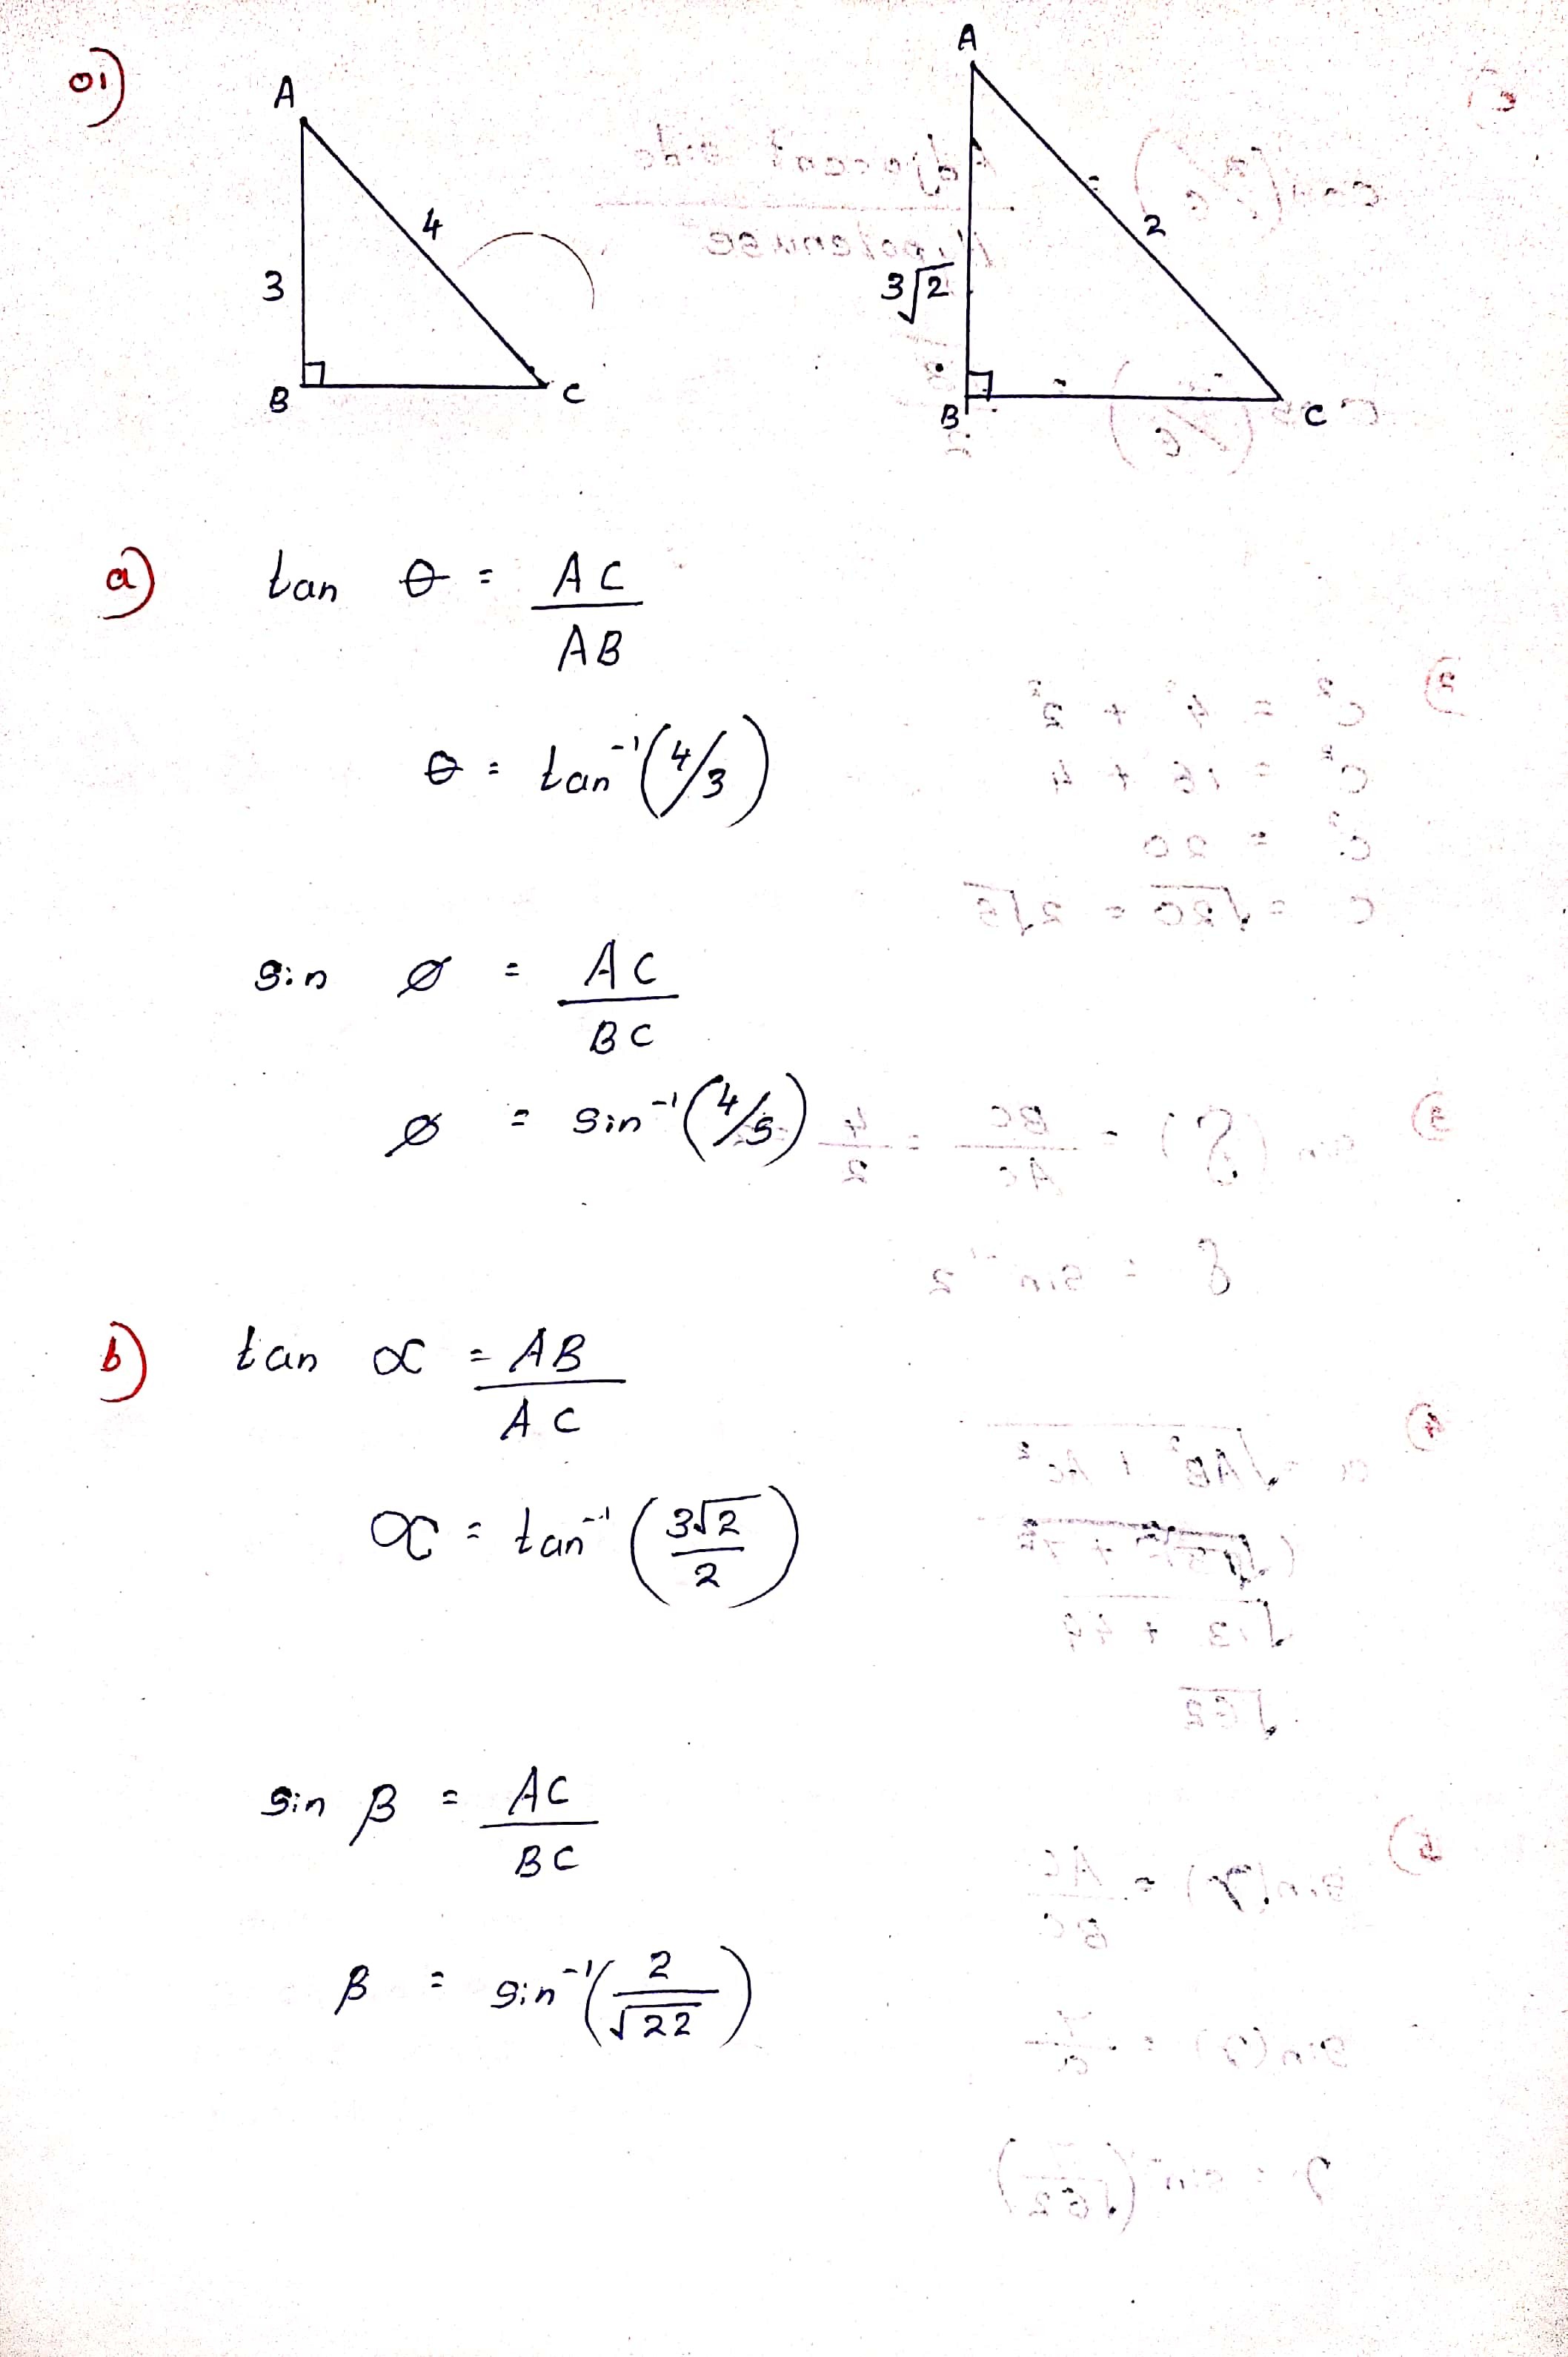 01)
A
4
3
B
C
A
2
3√2
B
C
a) tan θ = AC/AB
θ = tan⁻¹(4/3)
sin ø = AC/BC
ø = sin⁻¹(4/5)
b) tan α = AB/AC
α = tan⁻¹(3√2/2)
sin β = AC/BC
β = sin⁻¹(2/√22)